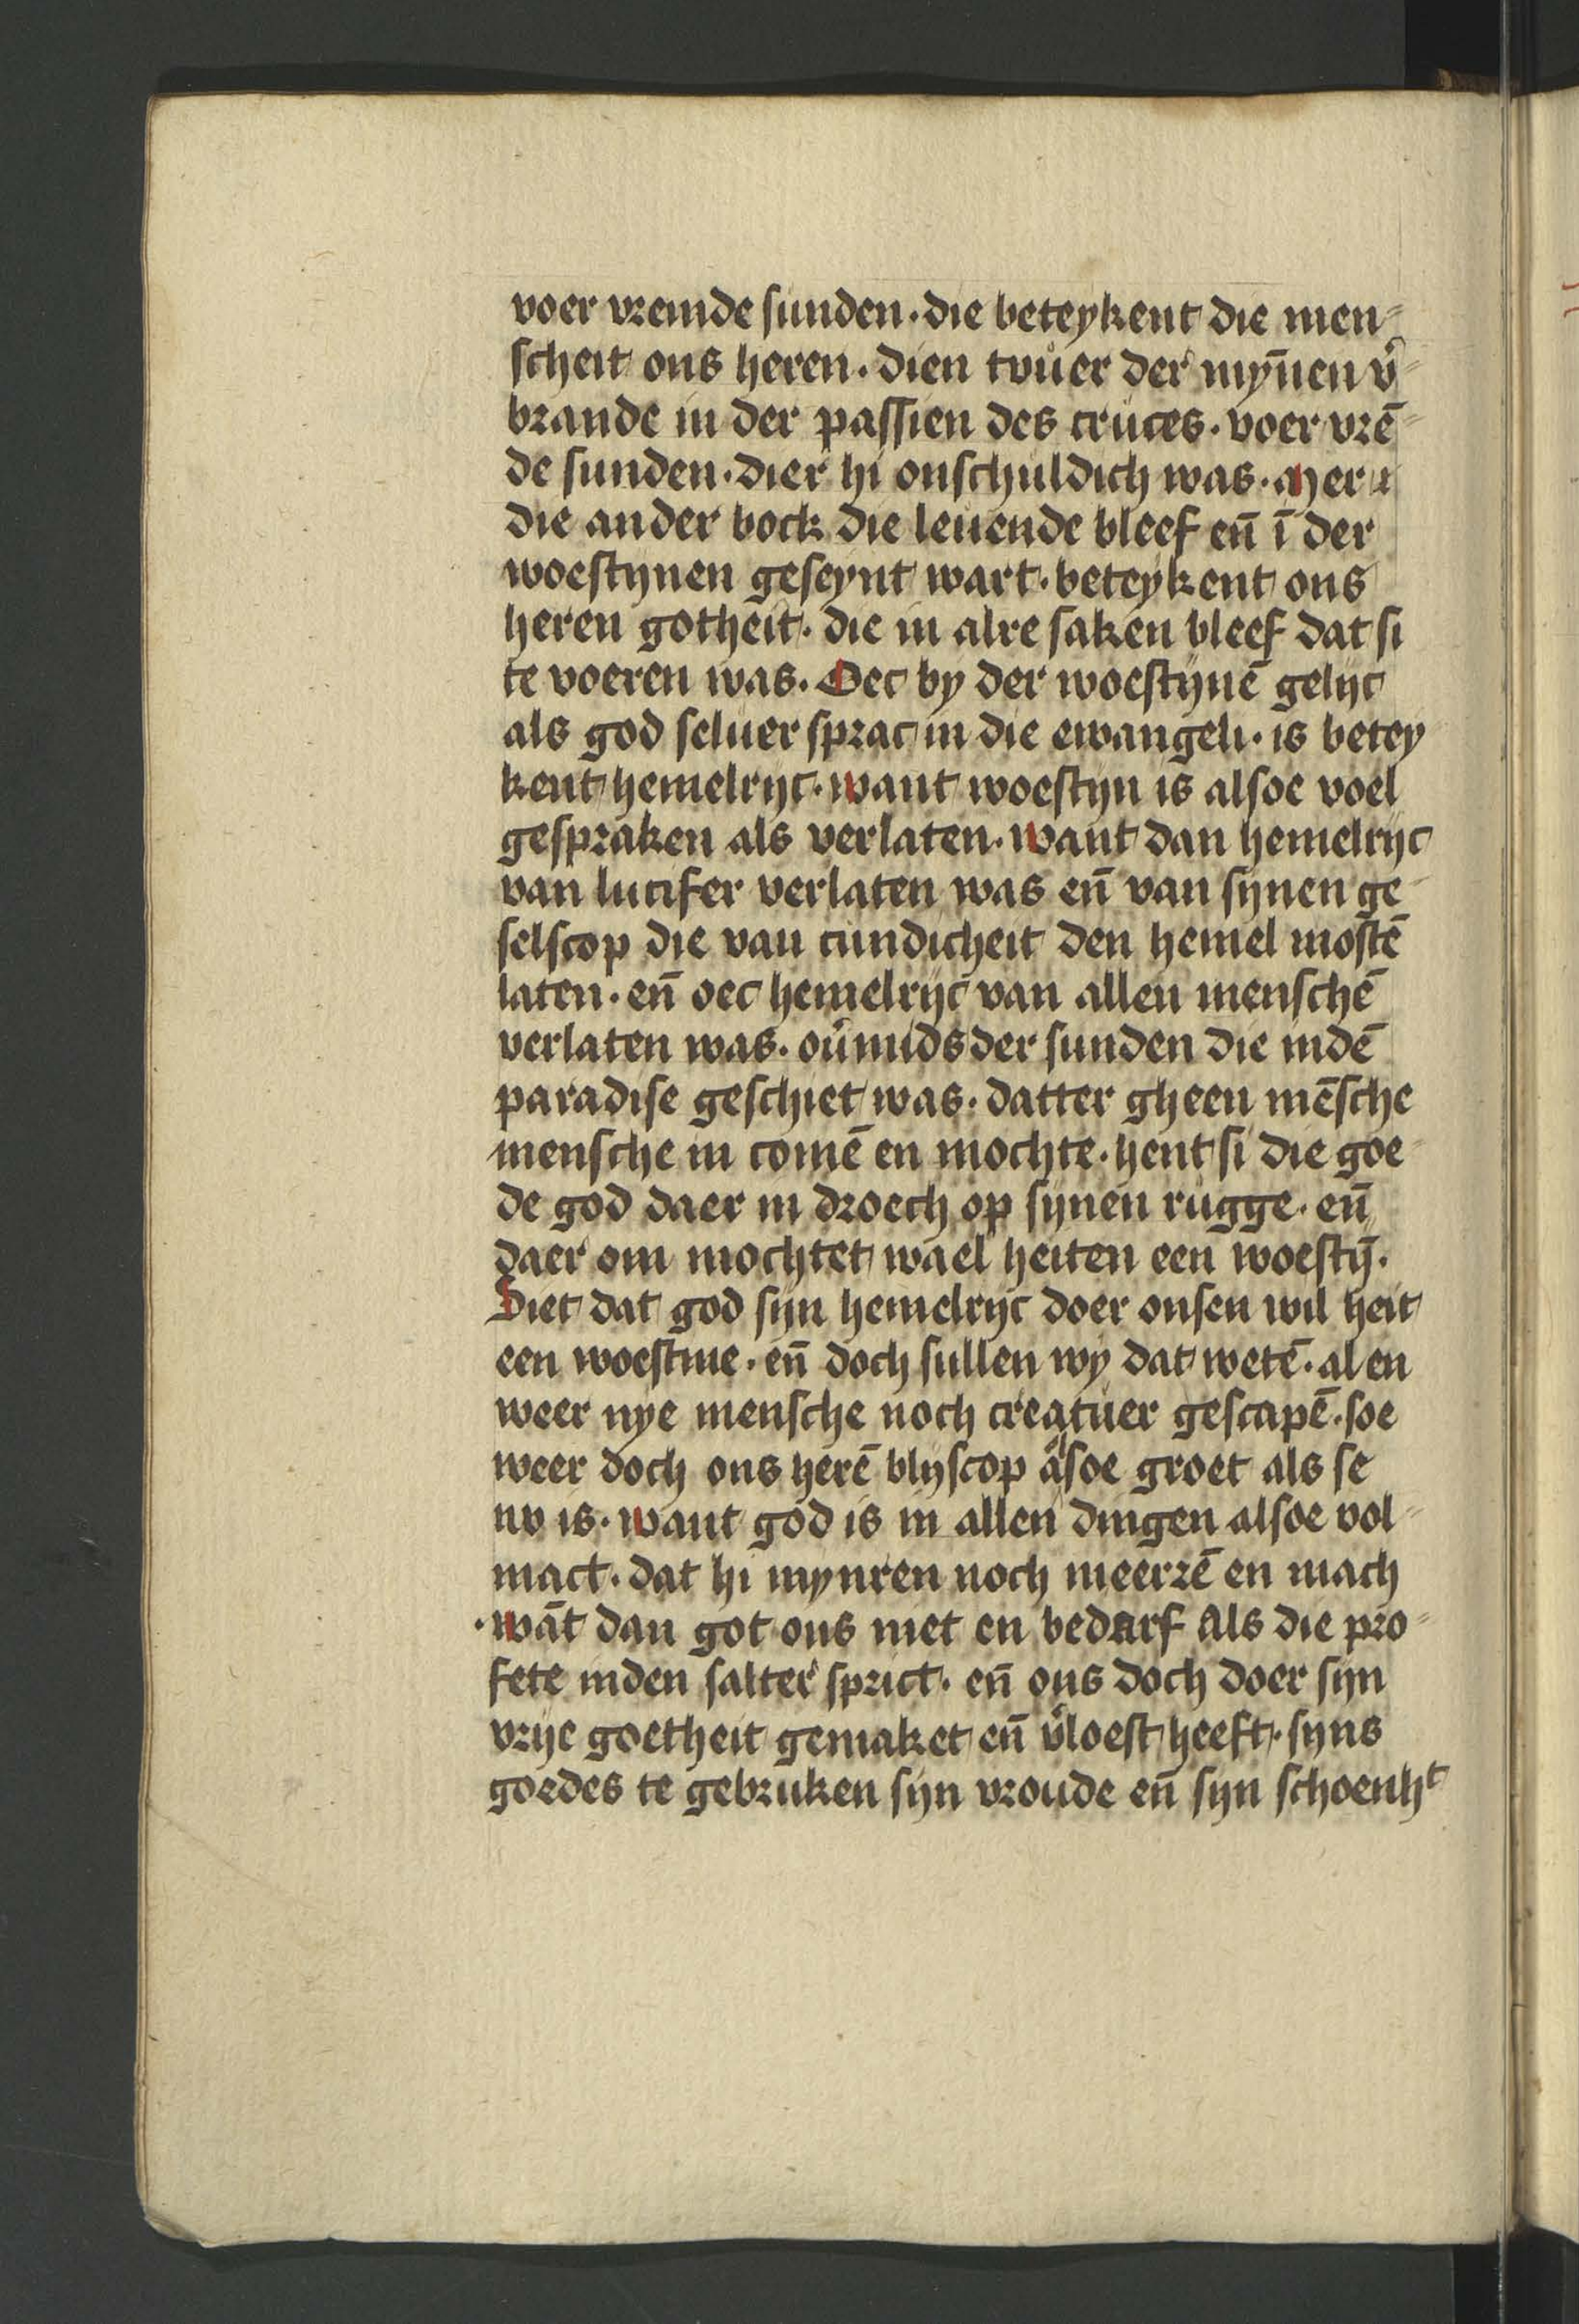 voer vremde sunden · die beteykent die men-
scheit ons heren · dien tvuer der myn̄en v͛-
brande in der passien des cruces · voer vrē-
de sunden · dier hi onschuldich was · Mer
die ander bock die leuende bleef en̄ ī der
woestynen geseynt wart · beteykent ons
heren gotheit · die in alre saken bleef dat si
te voeren was · Oec by der woestynē gelijc
als god seluer sprac in die ewangeli · is betey
kent hemelryc · want woestyn is alsoe voel
gespraken als verlaten · want dan hemelryc
van lucifer verlaten was en̄ van synen ge-
selscop die van cundicheit den hemel mostē
laten · en̄ oec hemelryc van allen menschē
verlaten was · ou͛mids der sunden die indē
paradise geschiet was · datter gheen mēsche
mensche in comē en mochte · hent si die goe-
de god daer in droech op synen rugge · en̄
daer om mochtet wael heiten een woestȳ ·
Siet dat god syn hemelryc doer onsen wil heit
een woestine · en̄ doch sullen wy dat wetē · al en
weer nye mensche noch creatuer gescapē · soe
weer doch ons herē blyscop alsoe groet als se
nv is · want god is in allen dingen alsoe vol-
mact · dat hi mynren noch meerrē en mach
· wāt dan got ons niet en bedarf als die pro-
fete inden salter sprict · en̄ ons doch doer syn
vrye goetheit gemaket en̄ v͛loest heeft · syns
goedes te gebruken syn vroude en̄ syn schoenhᵗ